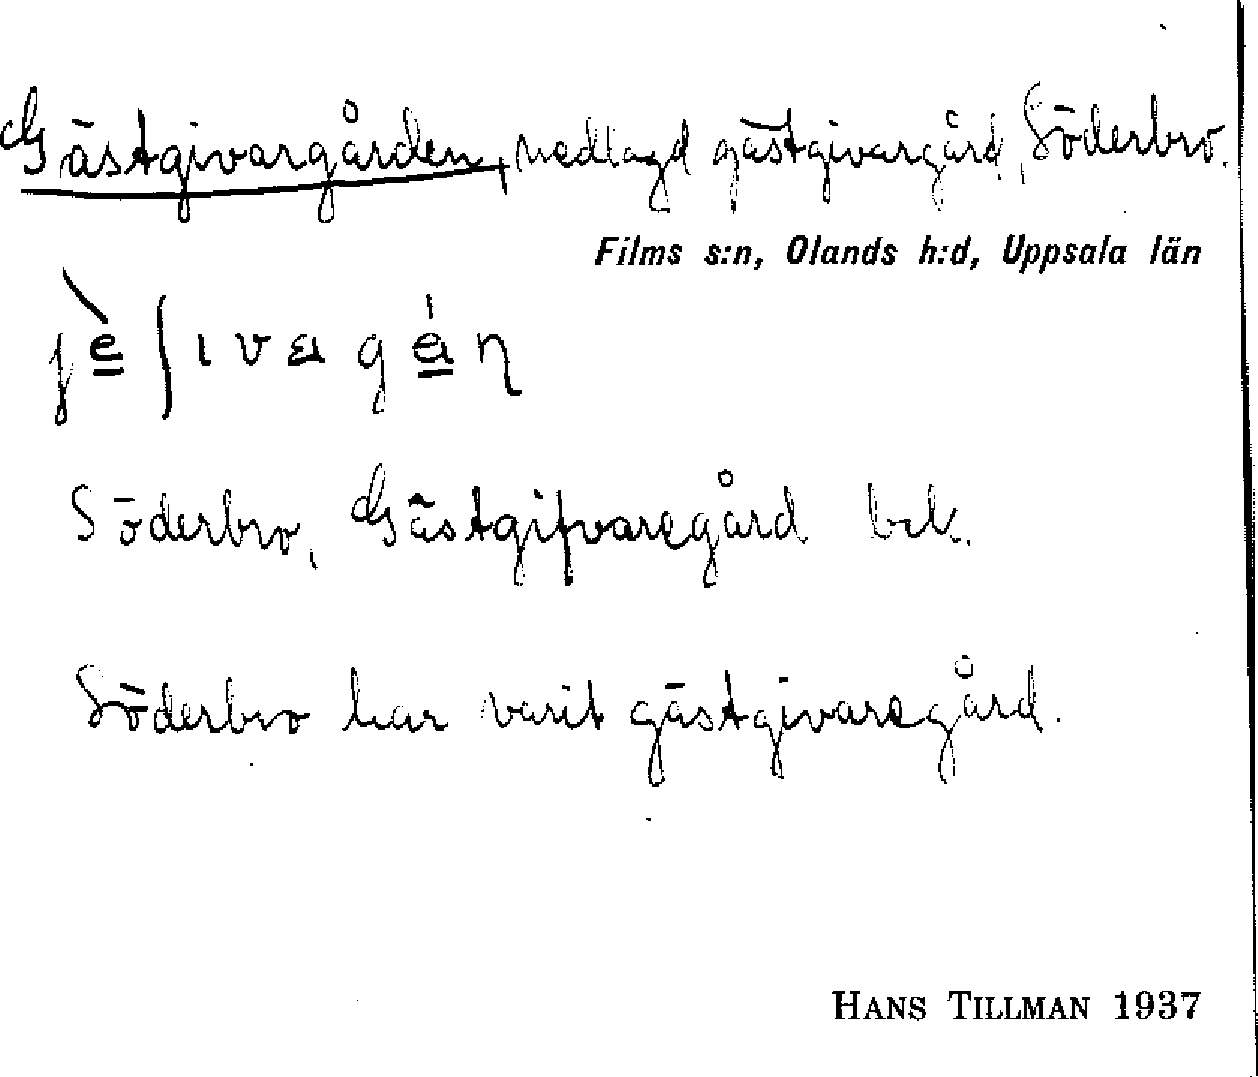 Gästgivargården, nedlagd gästgivargård, Söderbro.
Films s:n, Olands h:d, Uppsala län
Söderbro, Gästgifvaregård bek.
Söderbro har varit gästgivaregård.
HANS TILLMAN 1937